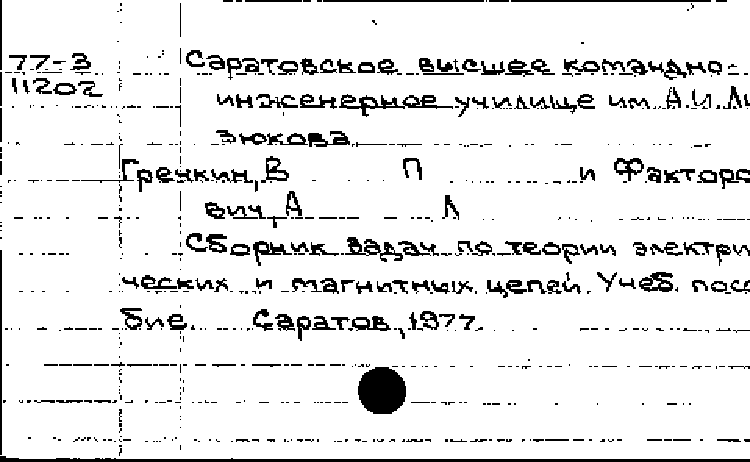 77-3 Саратовское высшее командно-
11202 инженерное училище им. А.И. Ли
зюкова.
Гречкин, В П и Факторо
вич, А Л
Сборник задач по теории электри
ческих и магнитных цепей. Учеб. посо
бие. Саратов, 1977.